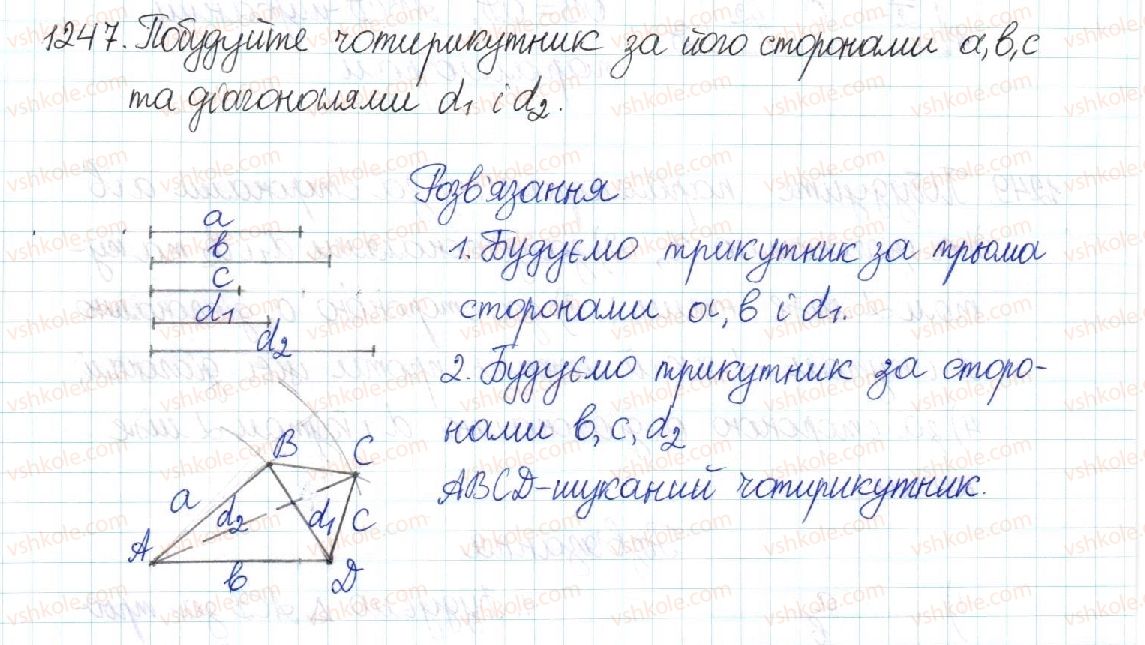 1247. Побудуйте чотирикутник за його сторонами a, b, c
та діагоналями d₁ і d₂.
Розв'язання
a
b
c
d₁
d₂
1. Будуємо трикутник за трьома
сторонами a, b і d₁.
2. Будуємо трикутник за сторо-
нами b, c, d₂
ABCD-шуканий чотирикутник.
B
C
a
d₂
d₁
c
A
b
D
vshkole.com